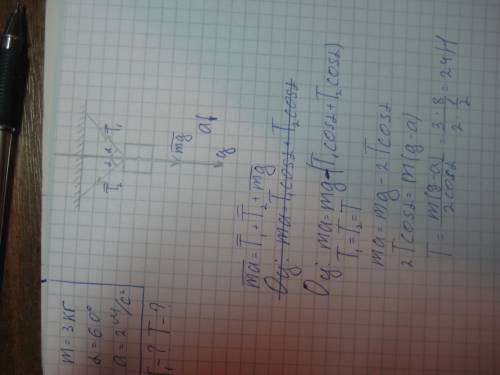 m = 3 кг
α = 60°
a = 2 м/с²
T₁ - ? T - ?
T₂ α α T₁
mg
a
y
ma = T₁ + T₂ + mg
Oy: ma = T₁cosα + T₂cosα
Oy: ma = mg - (T₁cosα + T₂cosα)
T₁ = T₂ = T
ma = mg - 2Tcosα
2Tcosα = m(g-a)
T = m(g-a) / 2cosα = 3 · 8 / 2 · 1/2 = 24 Н